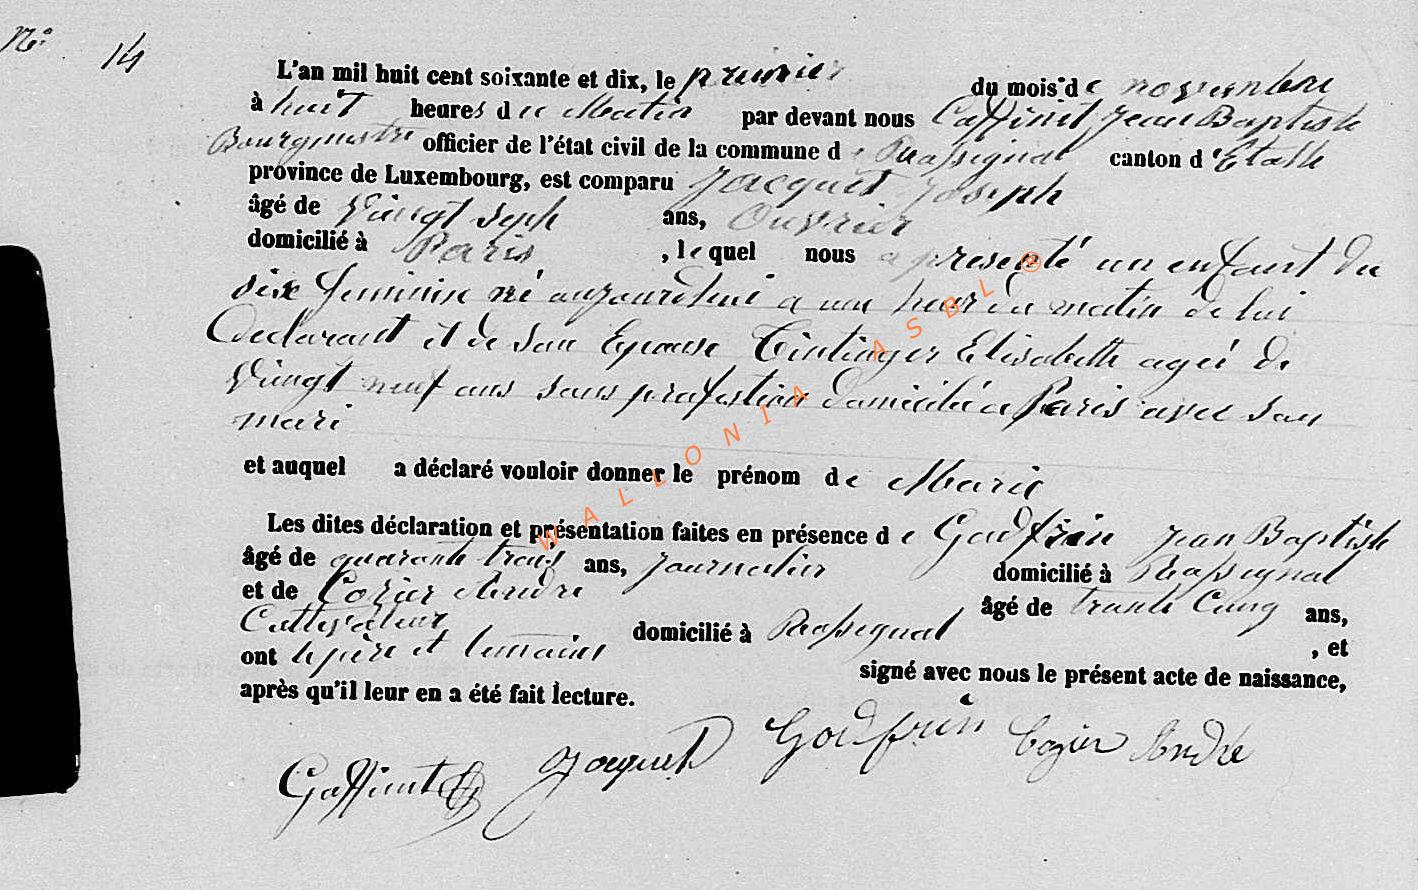 N°. 14
L'an mil huit cent soixante et dix, le premier du mois de novembre
à huit heures du Matin par devant nous Gaffinet Jean Baptiste
Bourgmestre officier de l'état civil de la commune de Rossignol canton d'Etalle
province de Luxembourg, est comparu Jacquet Joseph
âgé de Vingt Sept ans, Ouvrier
domicilié à Paris , lequel nous a présenté un enfant du
sixe feminin né aujourdhui a une heur du matin de lui
Declarant et de Son Epouse Tintinger Elisabetth agée de
Vingt neuf ans sans profestion domicilié a Paris avec son
mari
et auquel a déclaré vouloir donner le prénom de Marie
Les dites déclaration et présentation faites en présence de Godfrin Jean Baptiste
âgé de quarante trois ans, Journalier domicilié à Rossignol
et de Cozier André âgé de trente Cinq ans,
Cultivateur domicilié à Rossignol , et
ont le père et temoins signé avec nous le présent acte de naissance,
après qu'il leur en a été fait lecture.
Gaffinet Jacquet Godfrin Cozier André
WALLONIA ASBL ©